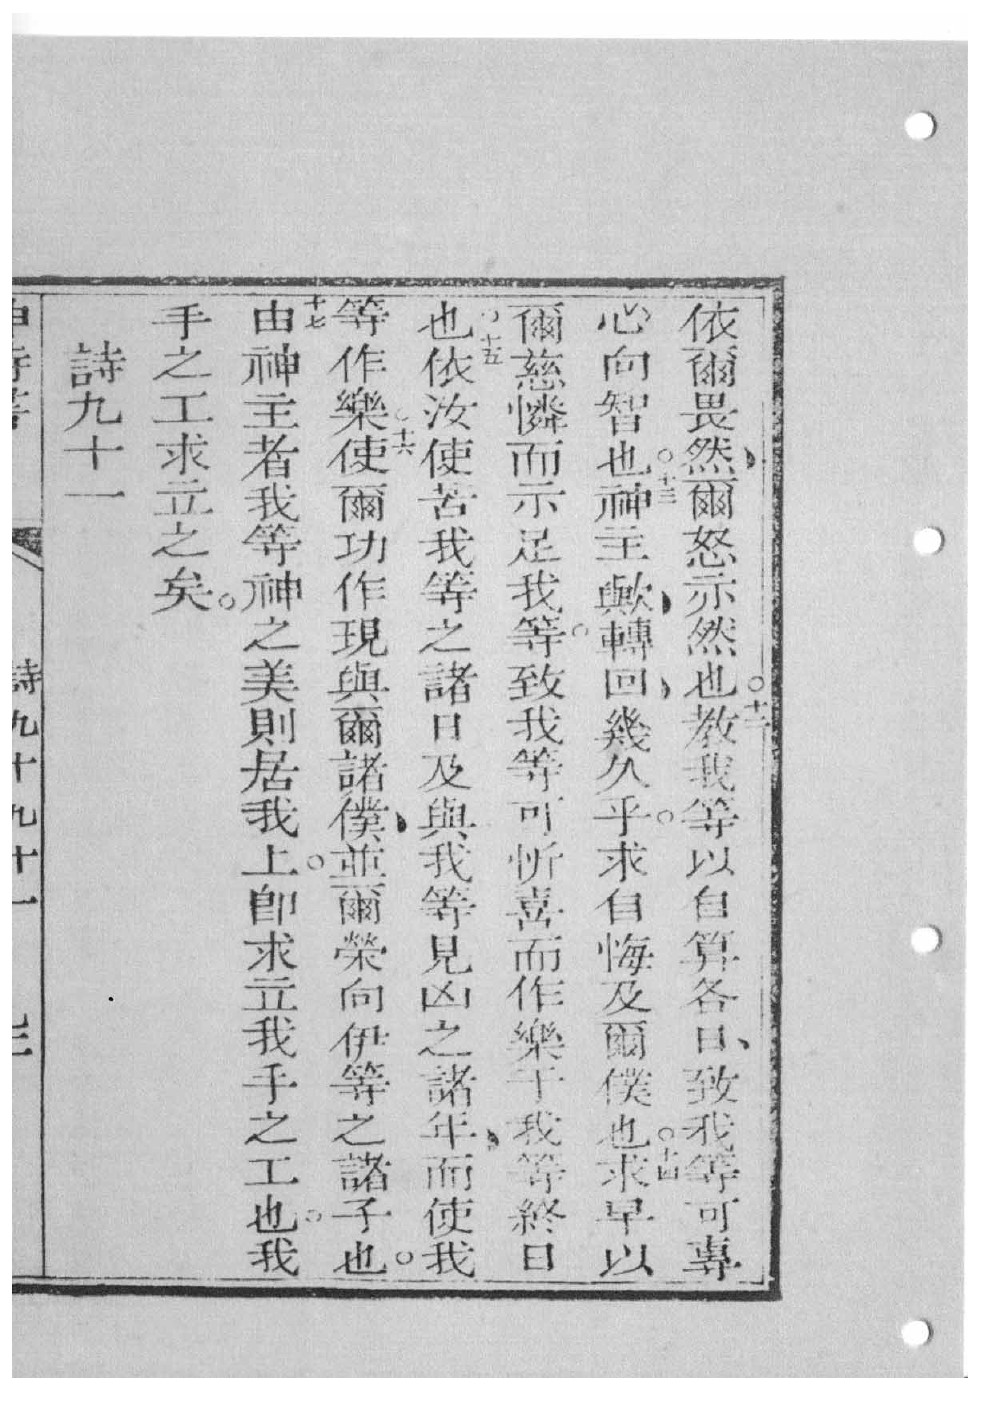 依爾畏然、爾怒示然也。十二教我等以自算各日、致我等可專
心向智也。十三神主歟、轉回、幾久乎。求自悔及爾僕也。十四求早以
爾慈憐而示足我等。致我等可忻喜而作樂于我等終日
也。十五依汝使苦我等之諸日及與我等見凶之諸年、而使我
等作樂。十六使爾功作現與爾諸僕、並爾榮向伊等之諸子也。
十七由神主者我等神之美則居我上。卽求立我手之工也。我
手之工求立之矣。
詩九十一
詩九十九十一